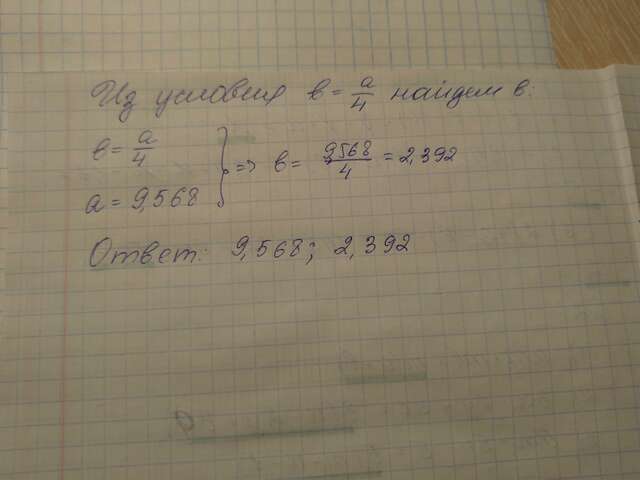 Из условия в = a/4 найдем в:
в = a/4
a = 9,568
} => в = 9,568/4 = 2,392
Ответ: 9,568; 2,392